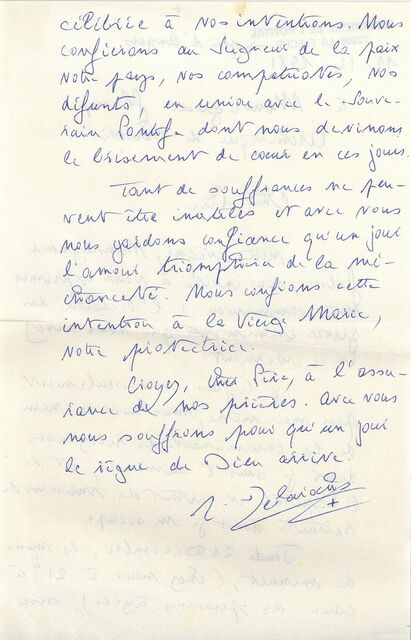 célébrée à nos intentions. Nous
confierons au Seigneur de la paix
notre pays, nos compatriotes, nos
défunts, en union avec le Souve-
rain Pontife dont nous devinons
le brisement de cœur en ces jours.
Tant de souffrances ne peu-
vent être inutiles et avec vous
nous gardons confiance qu'un jour
l'amour triomphera de la mé-
chanceté. Nous confions cette
intention à la Vierge Marie,
notre protectrice.
Croyez, cher Père, à l'assu-
rance de nos prières. Avec vous
nous souffrons pour qu'un jour
le règne de Dieu arrive